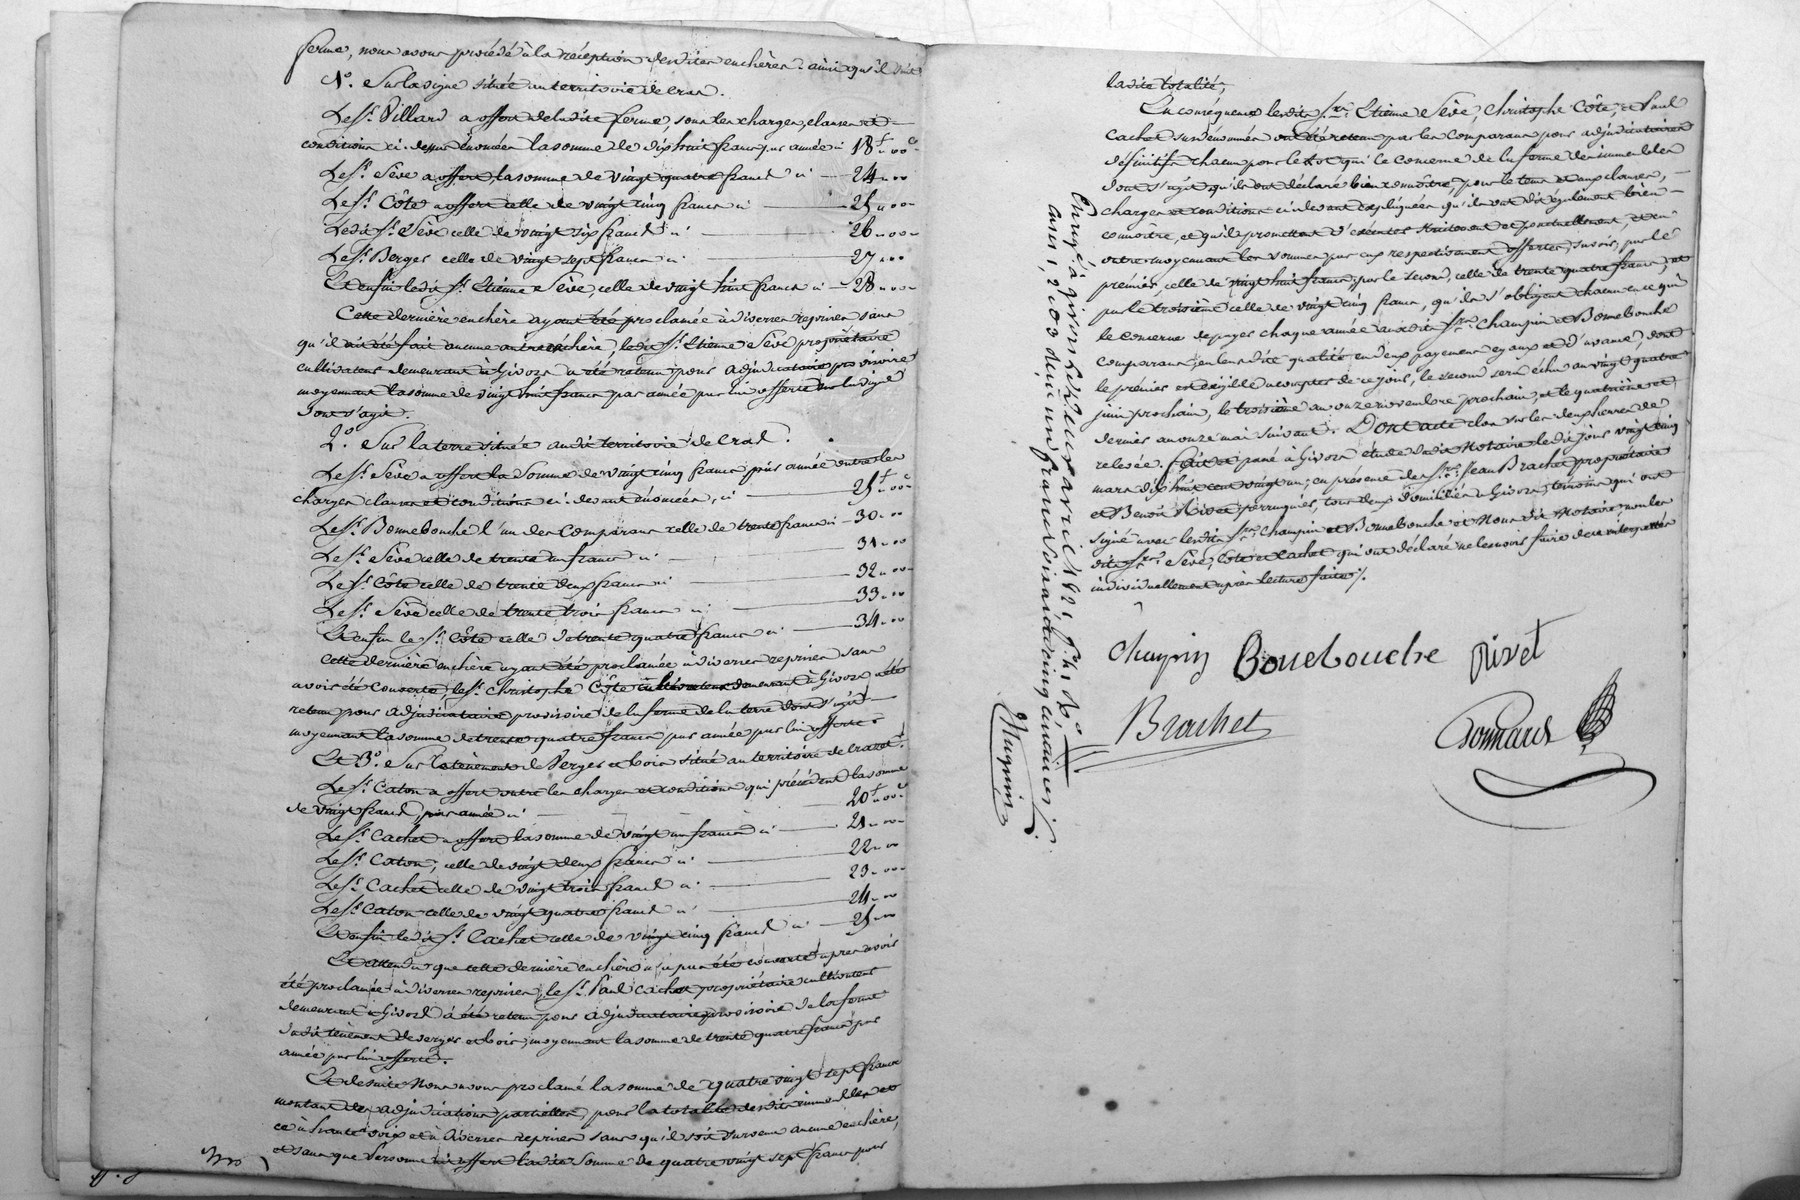 ferme, nous avons procédé à la réception desdites enchères ainsi qu'il suit
1º. Sur la vigne située au territoire de Cras.
Le Sr. Villard a offert de ladite ferme, sous les charges, clauses et
conditions ci-dessus énoncées la somme de dix huit francs par année ci 18f.. 00c
Le Sr. Sève a offert la somme de vingt quatre francs ci 24 .. 00
Le Sr. Côte a offert celle de vingt cinq francs ci 25 .. 00
Ledit Sr. Sève celle de vingt six francs ci 26 .. 00
Le Sr. Berger celle de vingt sept francs ci 27 .. 00
Et enfin ledit Sr. Etienne Sève, celle de vingt huit francs ci 28 .. 00
Cette dernière enchère ayant été proclamée à diverses reprises sans
qu'il ait été fait aucune autre enchère, ledit Sr. Etienne Sève propriétaire
cultivateur demeurant à Givors a été retenu pour adjudicataire provisoire
moyennant la somme de vingt huit francs par année par lui offerte sur la vigne
dont s'agit.
2º. Sur la terre située audit territoire de Cras.
Le Sr. Sève a offert la somme de vingt cinq francs par année outre les
charges clauses et conditions ci-devant énoncées, ci 25f.. 00c
Le Sr. Bonnebouche l'un des Comparans celle de trente francs ci 30 .. 00
Le Sr. Sève celle de trente un francs ci 31 .. 00
Le Sr. Côte celle de trente deux francs ci 32 .. 00
Le Sr. Sève celle de trente trois francs ci 33 .. 00
Et enfin le Sr. Côte celle de trente quatre francs ci 34 .. 00
Cette dernière enchère ayant été proclamée à diverses reprises sans
avoir été couverte, le Sr. Christophe Côte cultivateur demeurant à Givors a été
retenu pour adjudicataire provisoire de la ferme de la terre dont s'agit
moyennant la somme de trente quatre francs par année par lui offerte
Et 3º. Sur le tènement de Verger et bois situé au territoire de
Le Sr. Caton a offert outre les charges et conditions qui précèdent la somme
de vingt francs, par année ci 20f.. 00c
Le Sr. Cachet a offert la somme de vingt un francs ci 21 .. 00
Le Sr. Caton, celle de vingt deux francs ci 22 .. 00
Le Sr. Cachet celle de vingt trois francs ci 23 .. 00
Le Sr. Caton celle de vingt quatre francs ci 24 .. 00
Et enfin ledit Sr. Cachet celle de vingt cinq francs ci 25 .. 00
Et attendu que cette dernière enchère n'a pas été couverte après avoir
été proclamée à diverses reprises, le Sr. Paul Cachet propriétaire cultivateur
demeurant à Givors a été retenu pour adjudicataire provisoire de la ferme
dudit tènement de verger et bois, moyennant la somme de trente quatre francs par
année par lui offerte.
Et de suite Nous avons proclamé la somme de quatre vingt sept francs
montant des adjudications partielles, pour la totalité desdits immeubles et
ce à haute voix et à diverses reprises sans qu'il soit survenu aucune enchère,
et sans que personne ait offert ladite somme de quatre vingt sept francs pour
ladite totalité,
En conséquence lesdits Srs. Etienne Sève, Christophe Côte, et Paul
Cachet susdénommés ont été retenus par les Comparans pour adjudicataires
définitifs chacun pour le lot qui le concerne de la ferme des immeubles
dont s'agit qu'ils ont déclaré bien connoître, pour le tems et aux clauses,
charges et conditions ci-devant expliquées qu'ils ont dit également bien
connoître, et qu'ils promettent d'exécuter strictement et ponctuellement, et en
outre moyennant les sommes par eux respectivement offertes, savoir, par le
premier, celle de vingt huit francs, par le second, celle de trente quatre francs, et
par le troisième celle de vingt cinq francs, qu'ils s'obligent chacun en ce qui
le concerne de payer chaque année auxdits Srs. Champin et Bonnebouche
comparans, en leurdite qualité en deux payemens égaux et d'avance, dont
le premier est exigible à compter de ce jour, le second sera échu au vingt quatre
juin prochain, le troisième au onze novembre prochain, et le quatrième et
dernier au onze mai suivant. Dont acte clos sur les deux heures de
relevée. Fait et passé à Givors étude dudit Notaire ledit jour vingt cinq
mars dix huit cent vingt un; en présence des Srs. Jean Brachet propriétaire
et Benoît Rivet perruquier, tous deux domiciliés à Givors, témoins qui ont
signé avec lesdits Srs. Champin et Bonnebouche et Nous dit Notaire, non les
dits Srs. Sève, Côte et Cachet qui ont déclaré ne le savoir faire de ce interpellés
individuellement après lecture faite./.
Champin Bonebouche Rivet
Brachet
Bonnard
Enregé. à Givors le deux avril 1821, fo. 72 Ro.
cases 1, 2 et 3 reçu un franc vingt cinq centimes